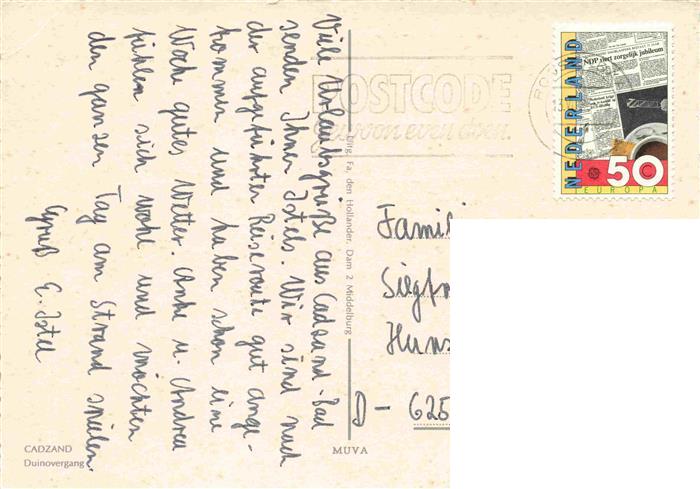 Viele Urlaubsgrüße aus Cadzand-Bad
senden Ihnen Istels. Wir sind nach
der aufgeführten Reiseroute gut ange-
kommen und haben schon eine
Woche gutes Wetter. Anke u. Andrea
fühlen sich wohl und möchten
den ganzen Tag am Strand spielen.
Gruß E. Istel
CADZAND
Duinovergang
Uitg. Fa. den Hollander, Dam 2 Middelburg
MUVA
POSTCODE
gewoon even doen.
NDP viert zorgelijk jubileum
NEDERLAND
50
EUROPA
Famil
Siegfr
Huns
D - 625